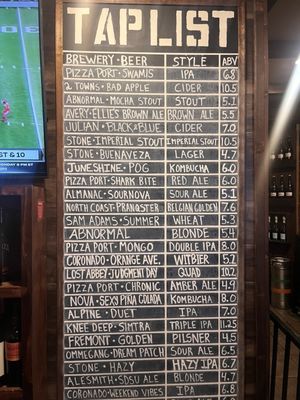 TAP LIST
BREWERY • BEER STYLE ABV
PIZZA PORT • SWAMIS IPA 6.8
2 TOWNS • BAD APPLE CIDER 10.5
ABNORMAL • MOCHA STOUT STOUT 5.1
AVERY • ELLIE'S BROWN ALE BROWN ALE 5.5
JULIAN • BLACK & BLUE CIDER 7.0
STONE • IMPERIAL STOUT IMPERIAL STOUT 10.5
STONE • BUENAVEZA LAGER 4.7
JUNESHINE • POG KOMBUCHA 6.0
PIZZA PORT • SHARK BITE RED ALE 6.0
ALMANAC • SOURNOVA SOUR ALE 5.1
NORTH COAST • PRANQSTER BELGIAN GOLDEN 7.6
SAM ADAMS • SUMMER WHEAT 5.3
ABNORMAL BLONDE 5.4
PIZZA PORT • MONGO DOUBLE IPA 8.0
CORONADO • ORANGE AVE. WITBIER 5.1
LOST ABBEY • JUDGMENT DAY QUAD 10.2
PIZZA PORT • CHRONIC AMBER ALE 4.9
NOVA • SEXY PIÑA COLADA KOMBUCHA 8.0
ALPINE • DUET IPA 7.0
KNEE DEEP • SIMTRA TRIPLE IPA 11.25
FREMONT • GOLDEN PILSNER 4.5
OMMEGANG • DREAM PATCH SOUR ALE 6.5
STONE • HAZY HAZY IPA 6.7
ALESMITH • SDSU ALE BLONDE 4.7
CORONADO • WEEKEND VIBES IPA 6.8
ST & 10